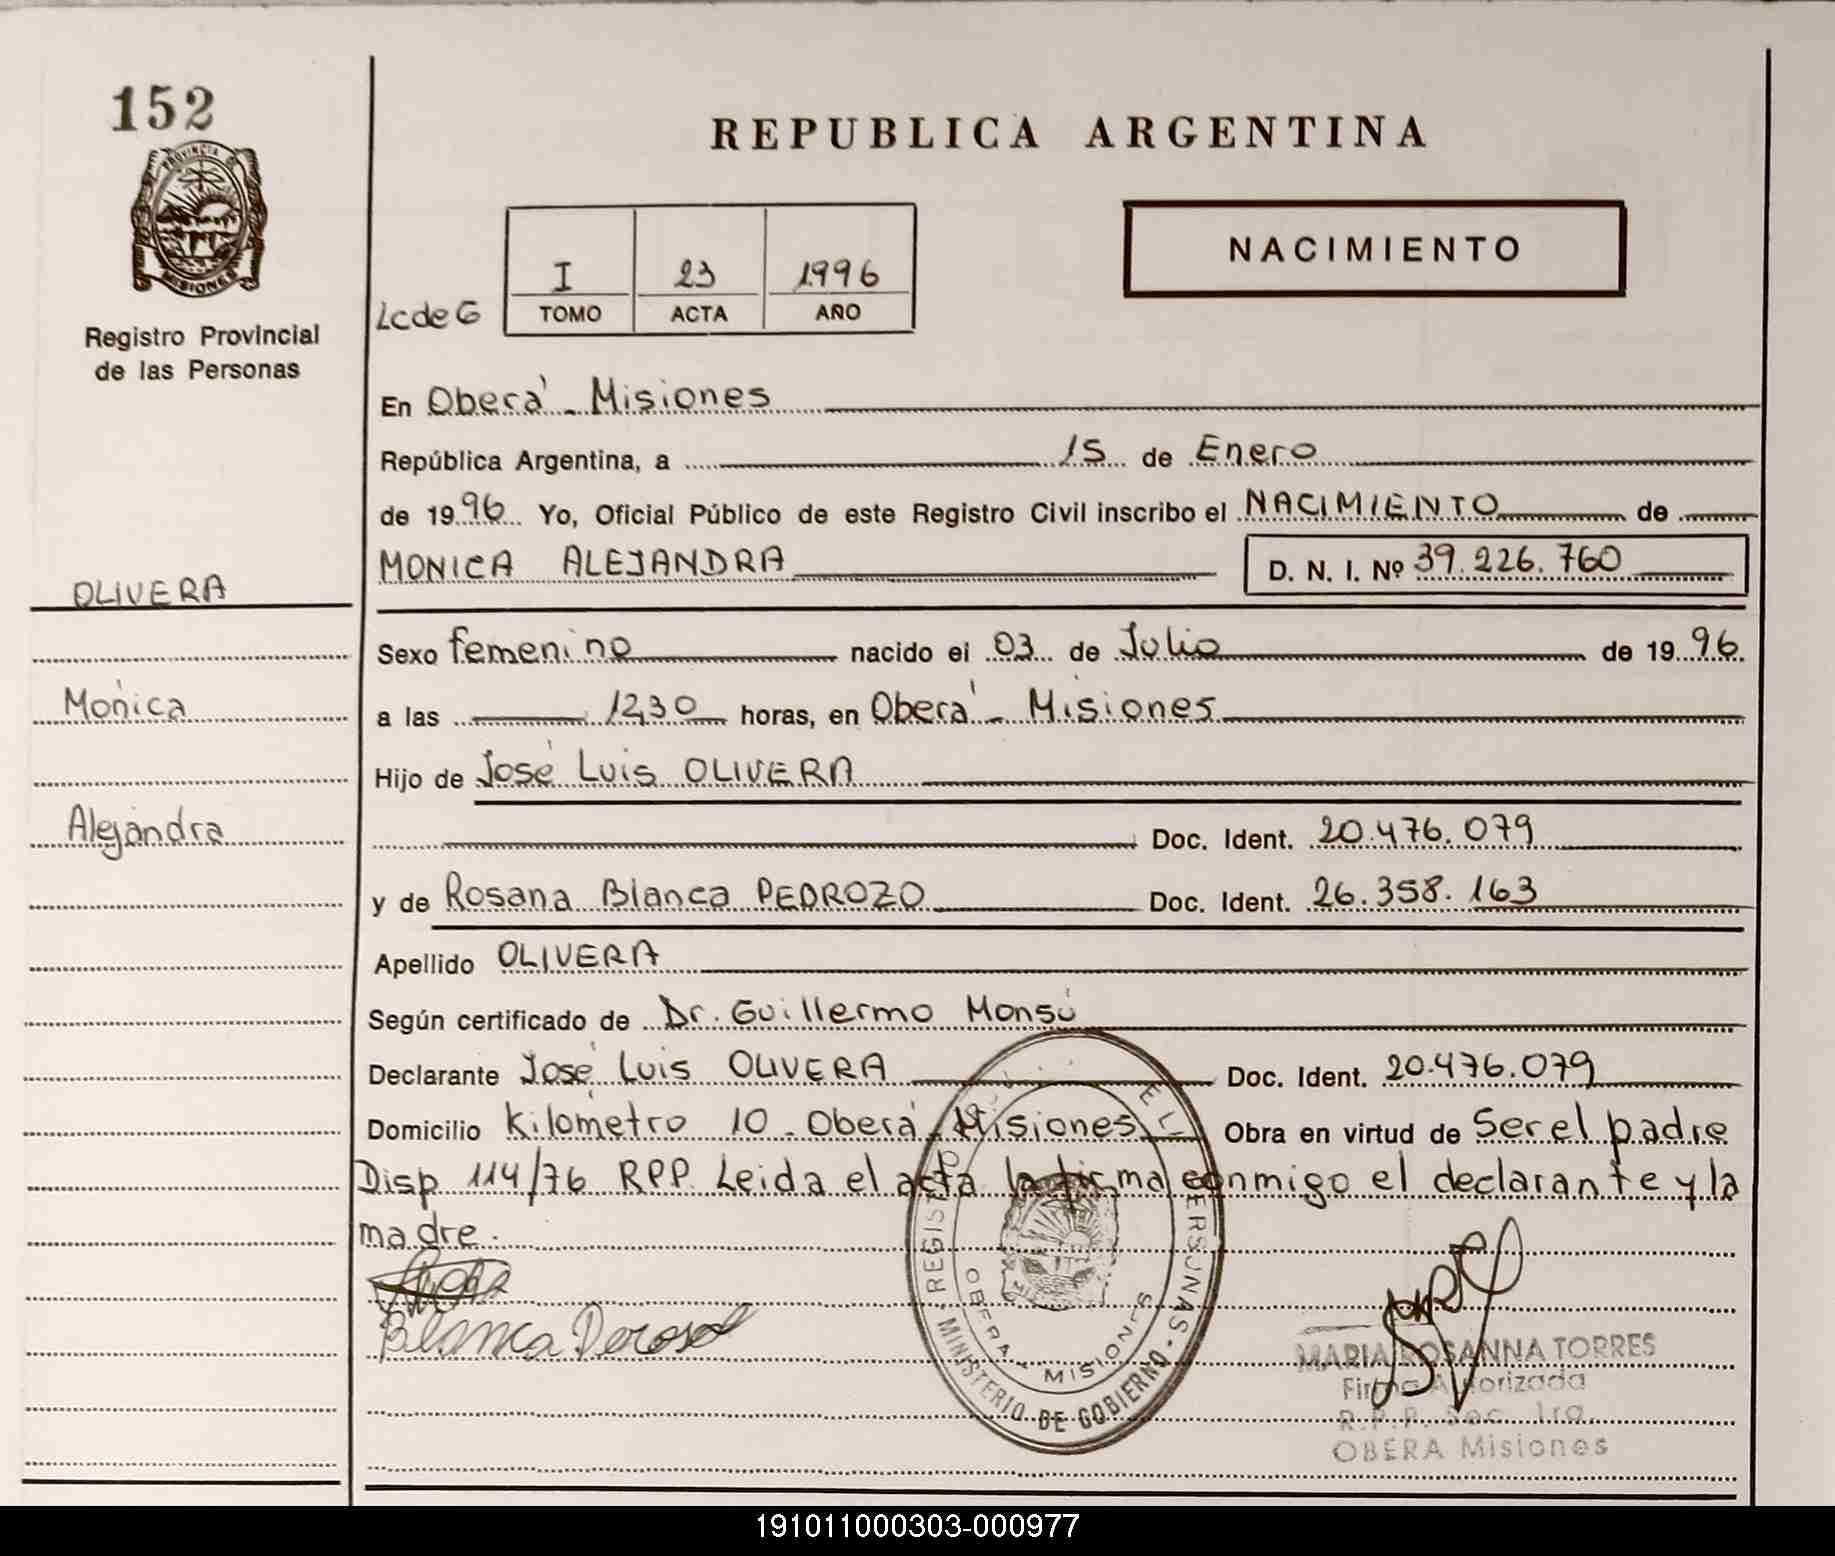 152
PROVINCIA DE
MISIONES
Registro Provincial
de las Personas
REPUBLICA ARGENTINA
NACIMIENTO
Lc de G
I 23 1996
TOMO ACTA AÑO
En Oberá - Misiones
República Argentina, a 15 de Enero
de 1996 Yo, Oficial Público de este Registro Civil inscribo el NACIMIENTO de
MONICA ALEJANDRA D. N. I. Nº 39.226.760
OLIVERA
Sexo femenino nacido el 03 de Julio de 1996
Mónica
a las 12,30 horas, en Oberá - Misiones
Hijo de José Luis OLIVERA
Alejandra
Doc. Ident. 20.476.079
y de Rosana Blanca PEDROZO Doc. Ident. 26.358.163
Apellido OLIVERA
Según certificado de Dr. Guillermo Monsú
Declarante José Luis OLIVERA Doc. Ident. 20.476.079
Domicilio Kilómetro 10 - Oberá - Misiones Obra en virtud de Ser el padre
Disp 114/76 RPP. Leida el acta la firma conmigo el declarante y la
madre.
Blanca
MINISTERIO DE GOBIERNO
OBERA - MISIONES
MARIA ROSANNA TORRES
Firma Autorizada
R.P.P. Sec. 1ra.
OBERA Misiones
191011000303-000977